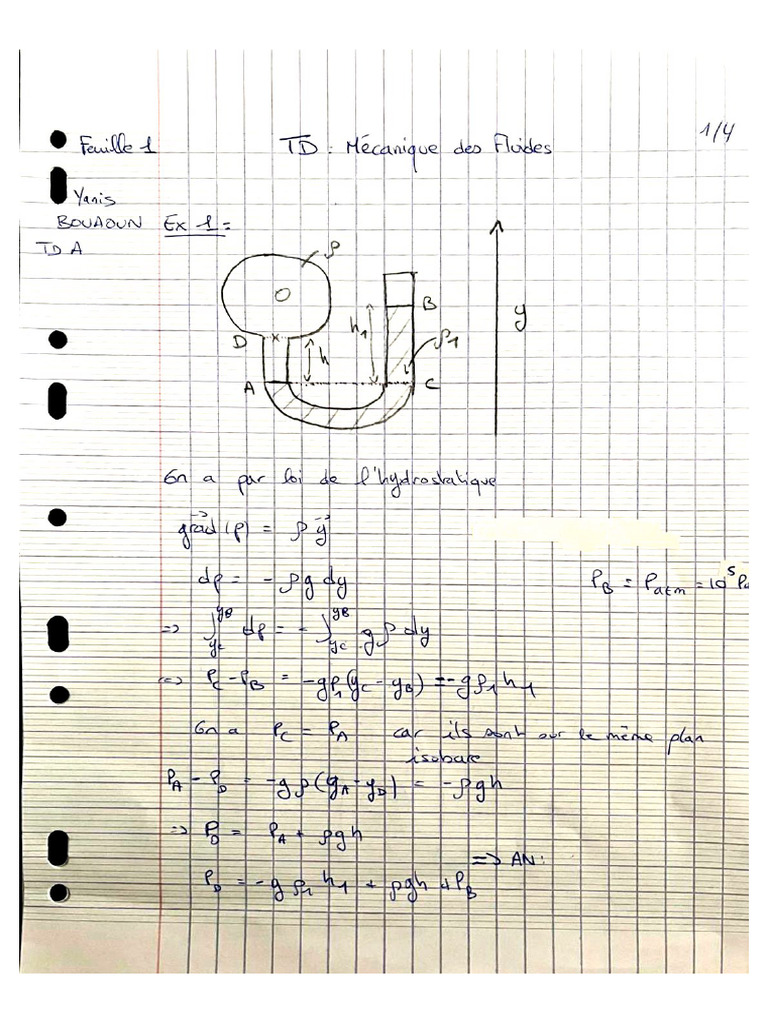 1/4
Feuille 1 TD : Mécanique des Fluides
Yanis
BOUAOUN Ex 1 :
TD A
ρ
O
B
h1
y
D
h
ρ1
A
C
On a par loi de l'hydrostatique
grad(p) = ρ g
dp = - ρ g dy
P_B = P_atm = 10^5 Pa
=> ∫_{yc}^{yB} dp = - ∫_{yc}^{yB} g ρ dy
<=> P_C - P_B = -gρ1(y_C - y_B) = -gρ1h1
On a P_C = P_A car ils sont sur le même plan
isobare
P_A - P_D = -gρ(y_A - y_D) = -ρgh
=> P_D = P_A + ρgh
=> AN :
P_D = -gρ1h1 + ρgh + P_B